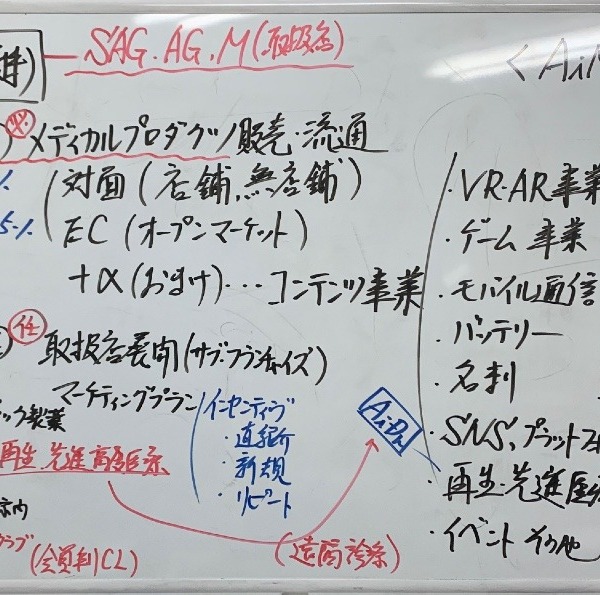 SAG. AG. M(取扱店)
<AiM
必
メディカルプロダクツ販売・流通
対面(店舗、無店舗)
5-%
EC(オープンマーケット)
+α(おまけ)…コンテンツ事業
任
取扱店展開(サブ・フランチャイズ)
マーケティングプラン
ック製薬
再生・先進高度医療
室内
クラブ
(会員制CL)
インセンティブ
・直紹介
・新規
・リピート
(遠隔診療)
・VR・AR事業
・ゲーム事業
・モバイル通信
・バッテリー
・名刺
・SNS、プラットフォ
・再生・先進医療
・イベント その他